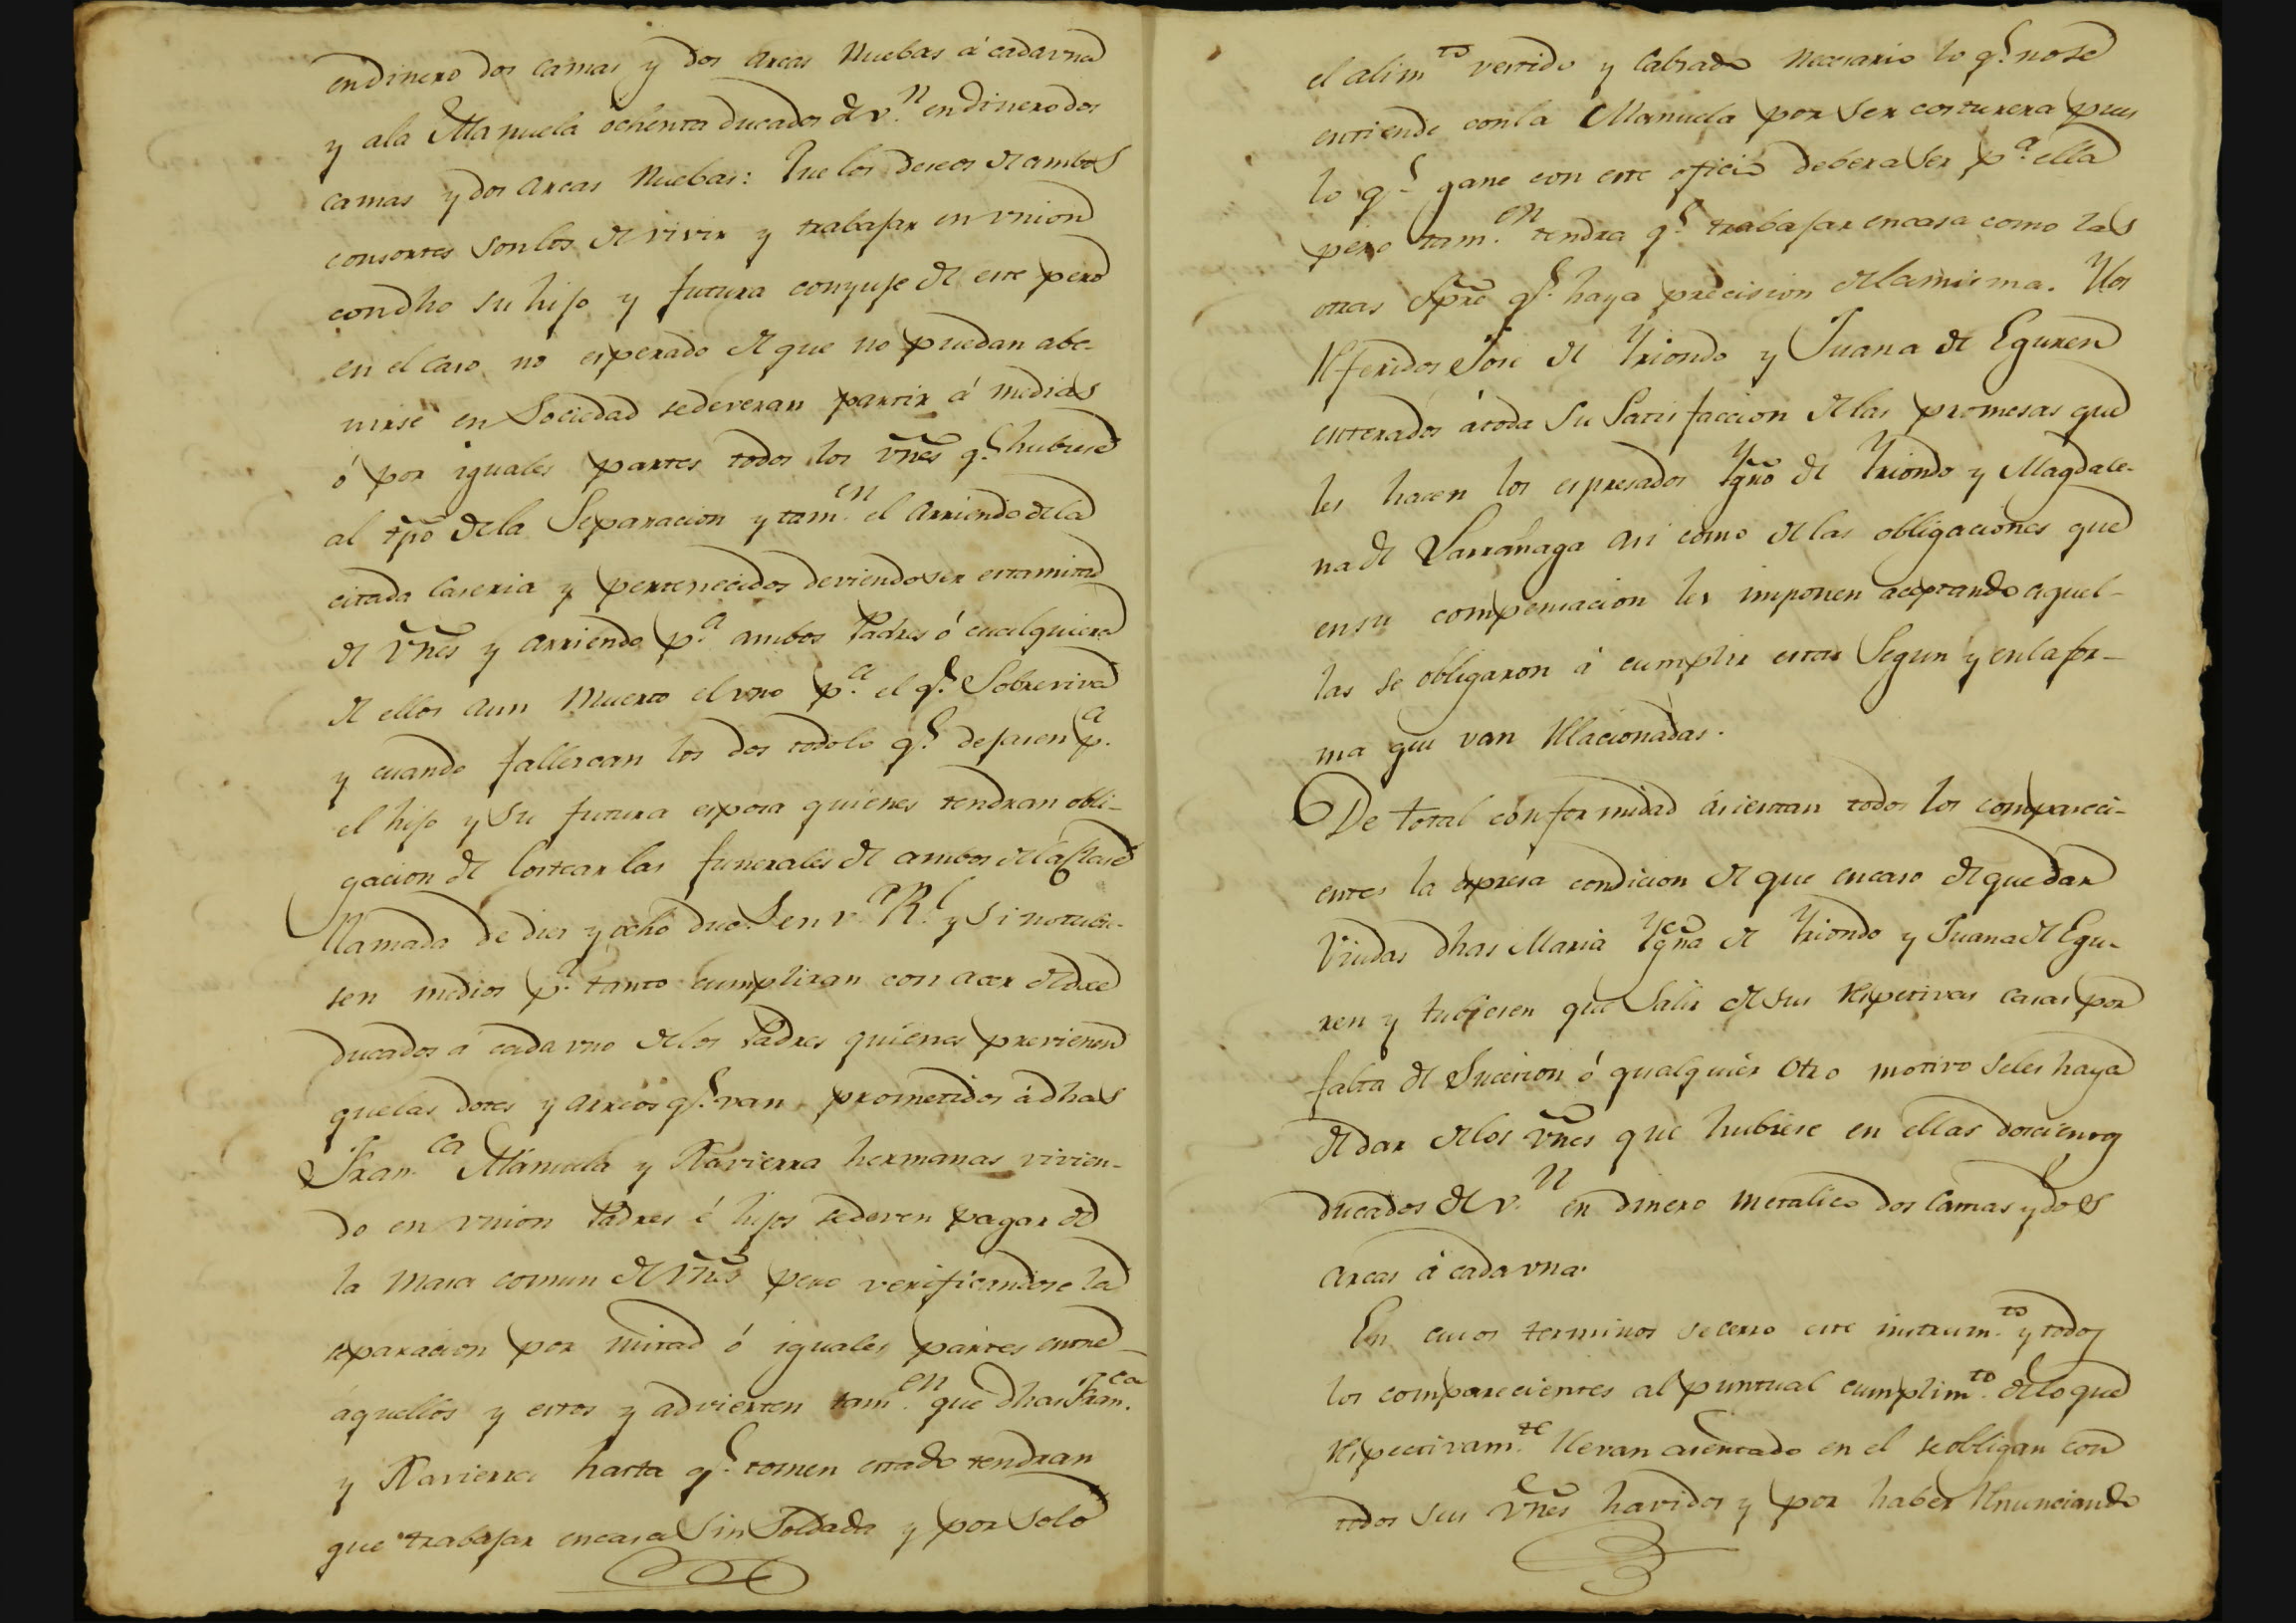 en dinero dos camas y dos arcas nuebas á cada una
y ala Manuela ochenta ducados de v.n en dinero dos
camas y dos arcas nuebas: Que los deseos de ambos
consortes son los de vivir y trabajar en union
con dho su hijo y futura conyuje de este pero
en el caso no esperado de que no puedan abe-
nirse en Sociedad se deveran partir á medias
ó por iguales partes todos los vnes q.e hubiese
al tpo de la Separacion y tam.en el arriendo de la
citada caseria y pertenecidos deviendo ser esta mitad
de vnes y arriendo p.a ambos Padres ó cualquiera
de ellos aun muerto el uno p.a el q.e Sobreviva
y cuando fallezcan los dos todo lo q.e dejasen p.a
el hijo y su futura esposa quienes tendran obli-
gacion de Costear las funerales de ambos de la clase
llamada de diez y ocho duc.s en v.n R.l y si no tubie-
sen medios p.a tanto cumpliran con acer de doce
ducados á cada uno de los Padres quienes previenen
que las dotes y arreos q.e van prometidos á dhas
Fran.ca Manuela y Xavierra hermanas vivien-
do en union Padres é hijos se deven pagar de
la masa comun de vnes pero verificandose la
separacion por mitad ó iguales partes entre
aquellos y estos y advierten tam.en que dhas Fran.ca
y Xavierra hasta q.e tomen estado tendran
que trabajar en casa sin Soldada y por solo
el alim.to vestido y calzado necesario lo q.e no se
entiende con la Manuela por ser costurera pues
lo q.e gane con este oficio debera ser p.a ella
pero tam.en tendra q.e trabajar en casa como las
otras Spre q.e haya precision de la misma. Ylos
Referidos José de Yriondo y Juana de Eguren
enterados á toda su Satisfaccion de las promesas que
les hacen los espresados Ygno de Yriondo y Magdale-
na de Larrañaga asi como de las obligaciones que
en su compensacion les imponen aceptando aquel-
las se obligaron á cumplir estas Segun y en la for-
ma que van Relacionadas.
De total conformidad ásientan todos los compareci-
entes la espresa condicion de que en caso de quedar
Viudas dhas Maria Ygña de Yriondo y Juana de Egu-
ren y tubiesen que Salir de sus Respetivas casas por
falta de Sucesion ó qualquier otro motivo se les haya
de dar de los vnes que hubiese en ellas doscientos
ducados de v.n en dinero metalico dos camas y dos
arcas á cada una.
En cuios terminos se cerro este instrum.to y todos
los comparecientes al puntual cumplim.to de lo que
Respectivam.te llevan asentado en el se obligan con
todos sus vnes havidos y por haber Renunciando